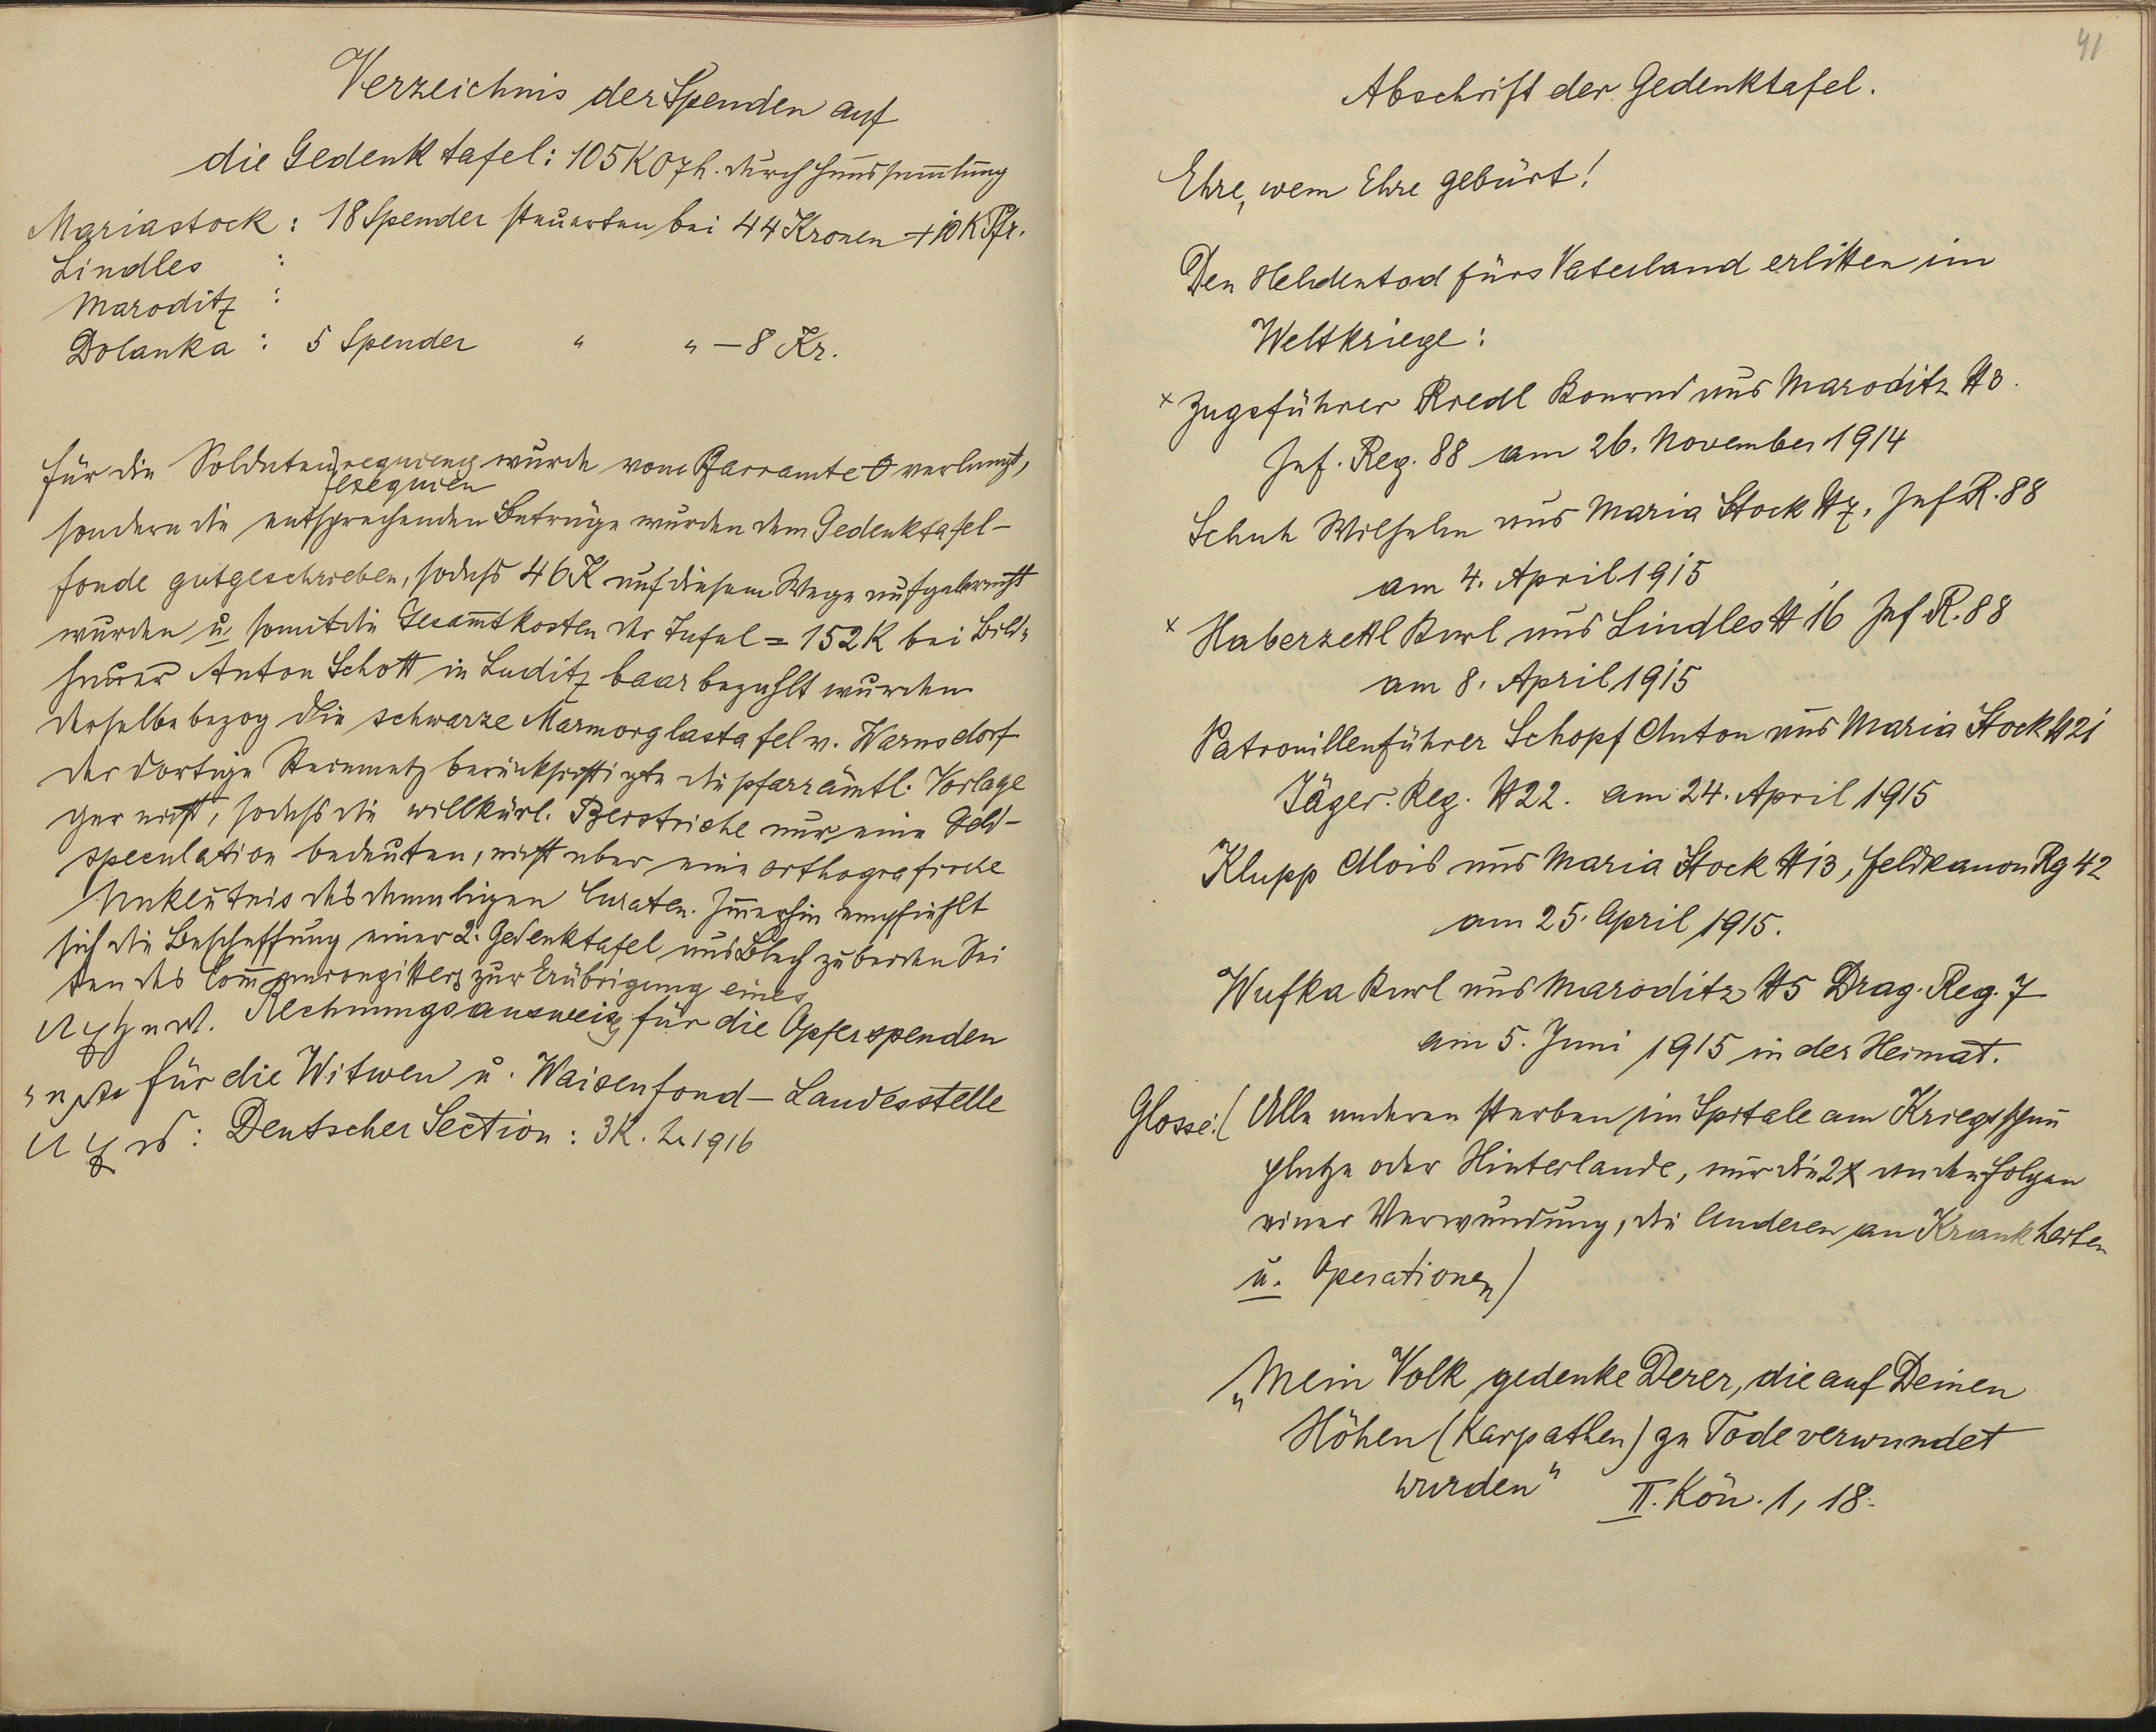 Verzeichnis der Spenden auf
die Gedenktafel: 105 K 07 h. durch Haussammlung
Mariastock: 18 Spender steuerten bei 44 Kronen + 10 K Pfr.
Lindles :
Maroditz :
Dolanka : 5 Spender " " – 8 Kr.
für die Soldatenrequiems wurde vom Pfarramte 0 verlangt,
exequien
sondern die entsprechenden Beträge wurden dem Gedenktafel-
fonde gutgeschrieben, sodass 46 K auf diesem Wege aufgebracht
wurden u. somit die Gesamtkosten der Tafel = 152 K bei Bild-
hauer Anton Schott in Luditz baar bezahlt wurden
derselbe bezog die schwarze Marmorglastafel v. Warnsdorf
der dortige Steinmetz berücksichtigte die pfarrämtl. Vorlage
gar nicht, sodass die willkürl. Beistriche nur eine Geld-
speculation bedeuten, nicht aber eine orthografische
Unkentnis des damaligen Curaten. Immerhin empfiehlt
sich die Beschaffung einer 2. Gedenktafel aus Blech zu beiden Sei
ten des Communongitters zur Erübrigung eines
Rechnungsausweis für die Opferspenden
für die Witwen u. Waisenfond – Landesstelle
Deutscher Section: 3 K. 1916
41
Abschrift der Gedenktafel.
Ehre, wem Ehre gebürt!
Den Heldentod fürs Vaterland erlitten im
Weltkriege:
x Zugsführer Riedl Konrad aus Maroditz # 3.
Inf. Reg. 88 am 26. November 1914
Schuh Wilhelm aus Maria Stock # 7, Inf R. 88
am 4. April 1915
x Haberzettl Karl aus Lindles # 16 Inf. R. 88
am 8. April 1915
Patrouillenführer Schopf Anton aus Maria Stock # 21
Jäger. Reg. # 22. am 24. April 1915
Klupp Alois aus Maria Stock # 13, Feldkanon Rg 42
am 25. April 1915.
Wufka Karl aus Maroditz # 5 Drag. Reg. 7
am 5. Juni 1915 in der Heimat.
Glosse: (Alle anderen starben im Spitale am Kriegsschau
platze oder Hinterlande, nur die 2 x an den Folgen
einer Verwundung, die Anderen an Krankheiten
u. Operationen)
„Mein Volk gedenke Derer, die auf Deinen
Höhen (Karpathen) zu Tode verwundet
wurden" II. Kön. 1, 18.